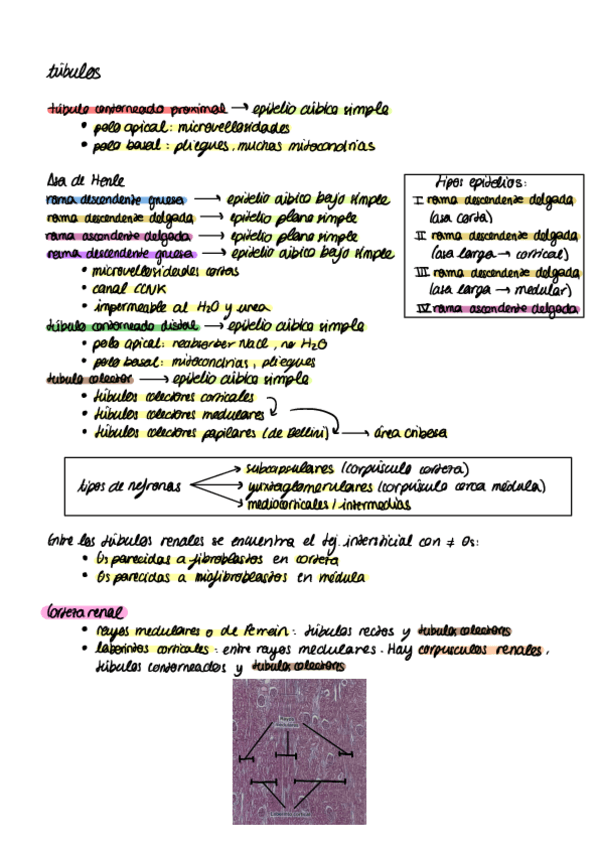 túbulos
túbulo contorneado proximal → epitelio cúbico simple
• polo apical: microvellosidades
• polo basal: pliegues, muchas mitocondrias
Asa de Henle
rama descendente gruesa → epitelio cúbico bajo simple
rama descendente delgada → epitelio plano simple
rama ascendente delgada → epitelio plano simple
rama descendente gruesa → epitelio cúbico bajo simple
• microvellosidades cortas
• canal CCNK
• impermeable al H2O y urea
tipos epitelios:
I rama descendente delgada
(asa corta)
II rama descendente delgada
(asa larga → cortical)
III rama descendente delgada
(asa larga → medular)
IV rama ascendente delgada
túbulo contorneado distal → epitelio cúbico simple
• polo apical: reabsorber NaCl, no H2O
• polo basal: mitocondrias, pliegues
tubulo colector → epitelio cúbico simple
• túbulos colectores corticales
• túbulos colectores medulares
• túbulos colectores papilares (de Bellini) → área cribosa
tipos de nefronas
→ subcapsulares (corpúsculo corteza)
→ yuxtaglomerulares (corpúsculo cerca médula)
→ mediocorticales / intermedias
Entre los túbulos renales se encuentra el tej. intersticial con ≠ Øs:
• Øs parecidas a fibroblastos en corteza
• Øs parecidas a miofibroblastos en médula
Corteza renal
• rayos medulares o de Ferrein: túbulos rectos y tubulos colectores
• laberintos corticales: entre rayos medulares. Hay corpusculos renales,
túbulos contorneados y tubulos colectores
Rayos
medulares
Laberinto cortical